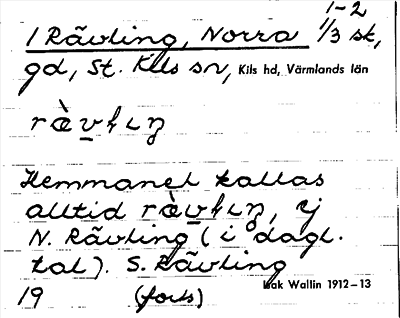 1-2
1 Rävling, Norra 1/3 sk,
gd, St. Kils sn, Kils hd, Värmlands län
Hemmanet kallas
alltid
N. Rävling (i dagl.
tal). S. Rävling
Isak Wallin 1912-13
19 (forts)